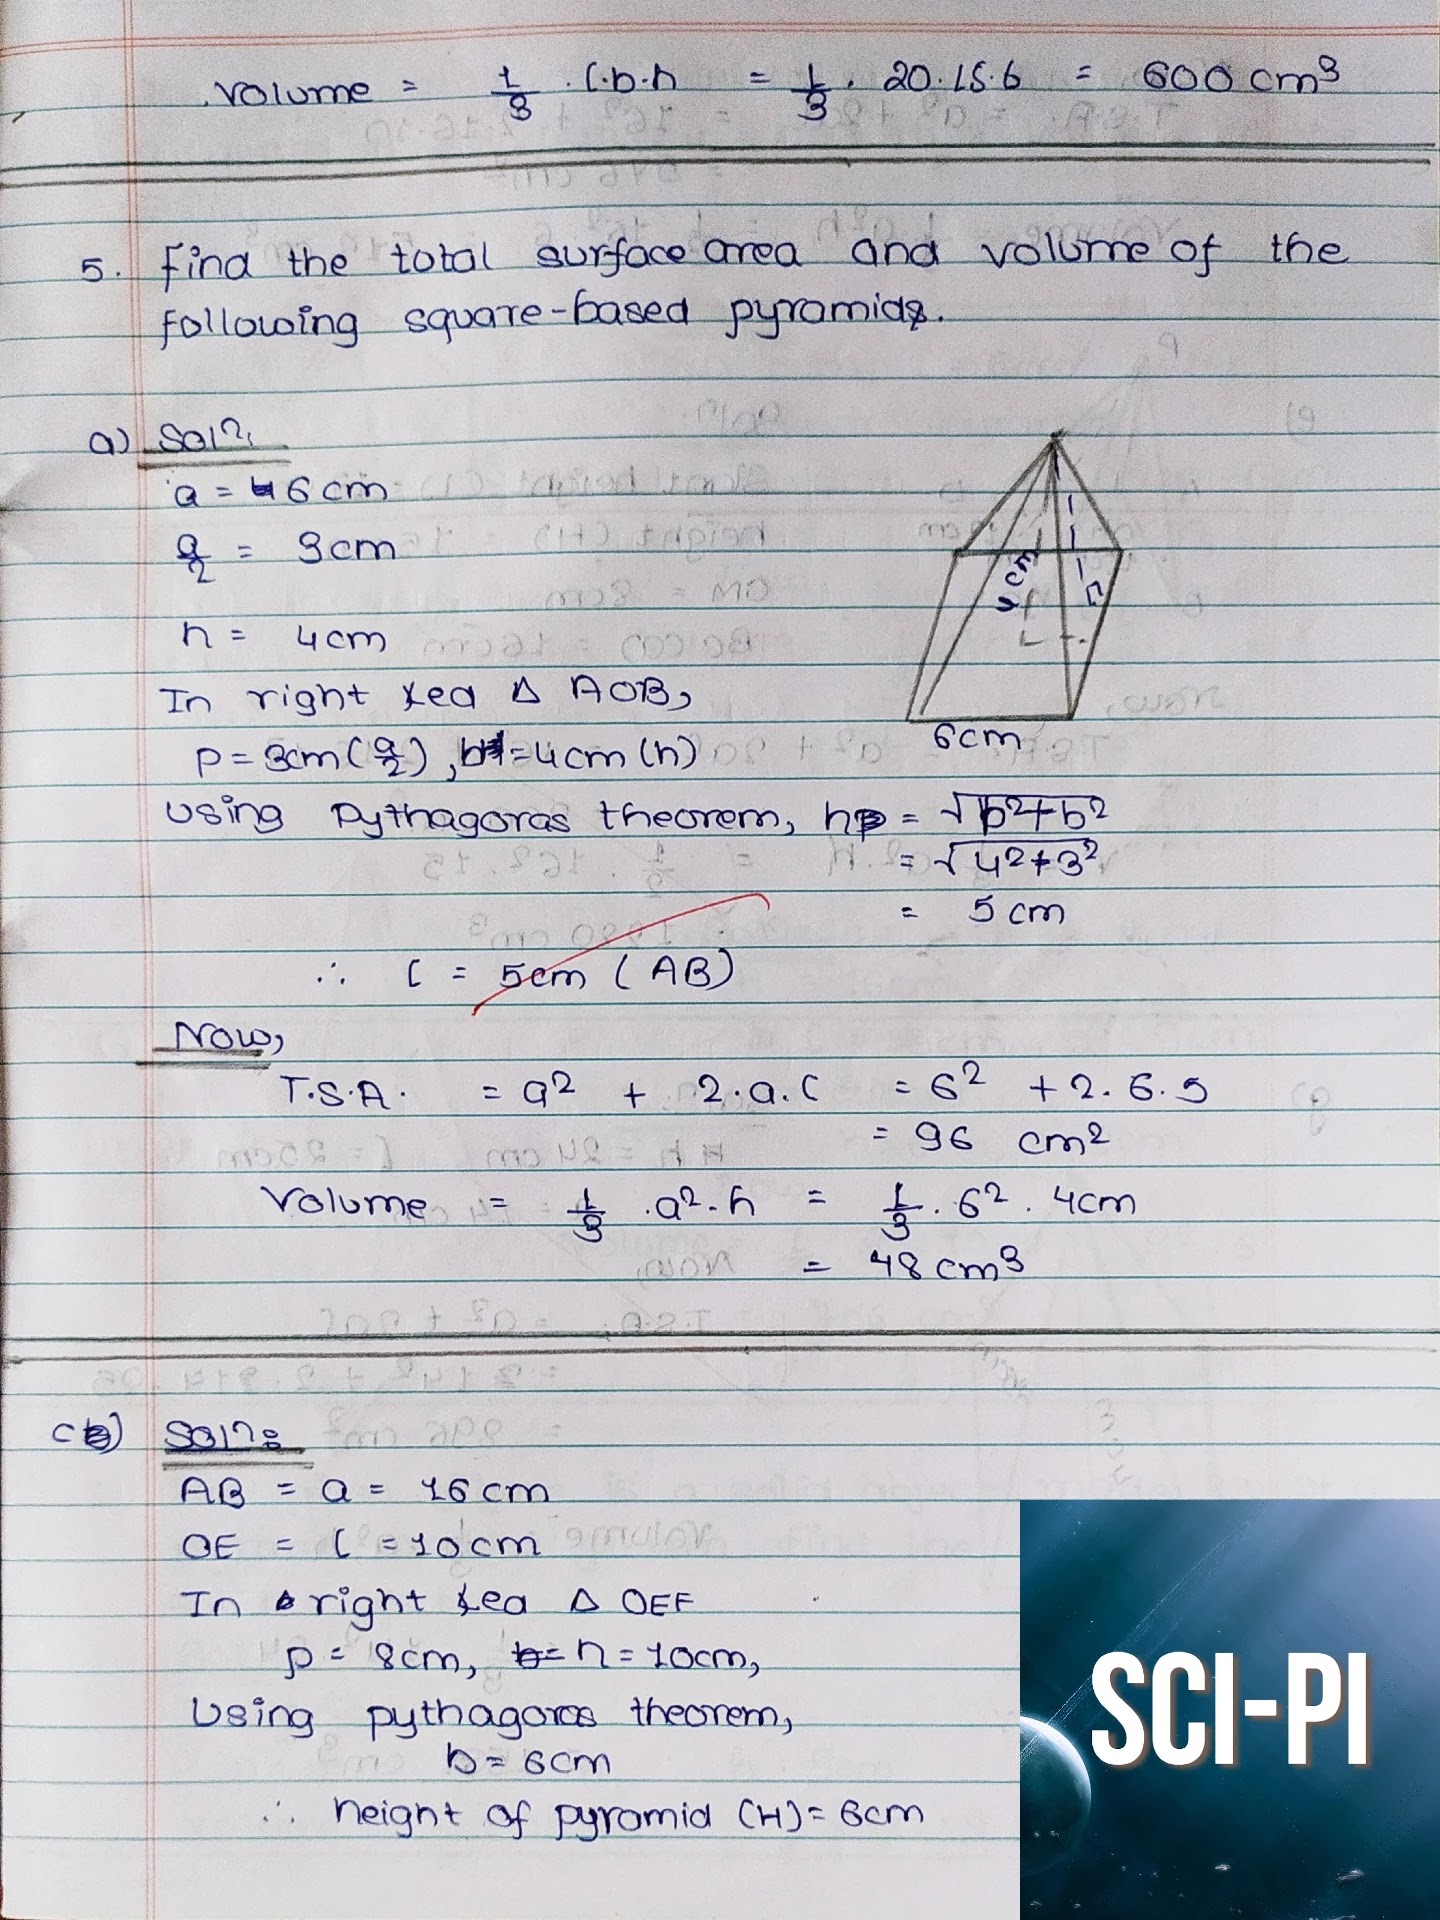 Volume = 1/3 . l.b.h = 1/3 . 20.15.6 = 600 cm³
5. Find the total surface area and volume of the
following square-based pyramids.
a) Solⁿ:
a = 6 cm
a/2 = 3cm
h = 4cm
In right ∠ed Δ AOB,
p = 3cm (a/2), b = 4cm (h)
Using Pythagoras theorem, h = √b²+b²
= √4²+3²
= 5 cm
∴ l = 5cm (AB)
cm
6cm
Now,
T.S.A. = a² + 2.a.l = 6² + 2.6.5
= 96 cm²
Volume = 1/3 .a².h = 1/3 . 6² . 4cm
= 48 cm³
c) Solⁿ:
AB = a = 16 cm
OE = l = 10cm
In right ∠ed Δ OEF
p = 8cm, h = 10cm,
Using pythagoras theorem,
b = 6cm
∴ height of pyramid (H) = 6cm
SCI-PI